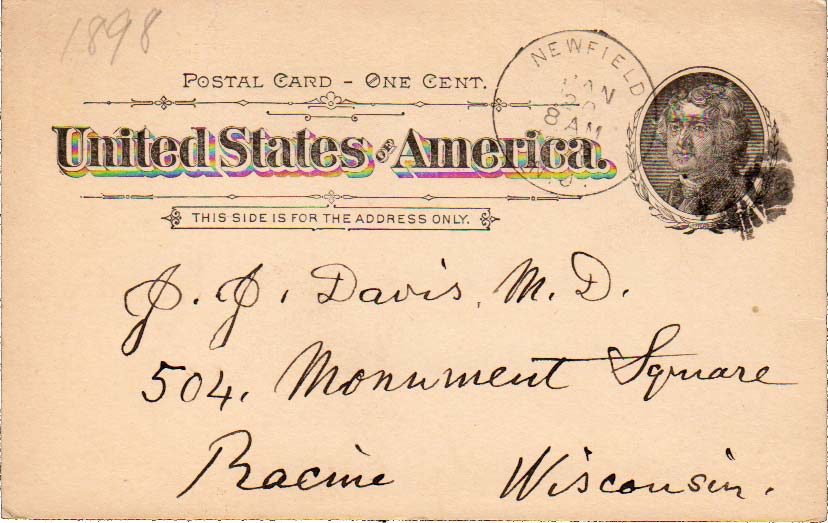 1898
POSTAL CARD - ONE CENT.
NEWFIELD
JAN
8 AM
N.J.
United States of America.
THIS SIDE IS FOR THE ADDRESS ONLY.
J. J. Davis, M. D.
504, Monument Square
Racine Wisconsin.